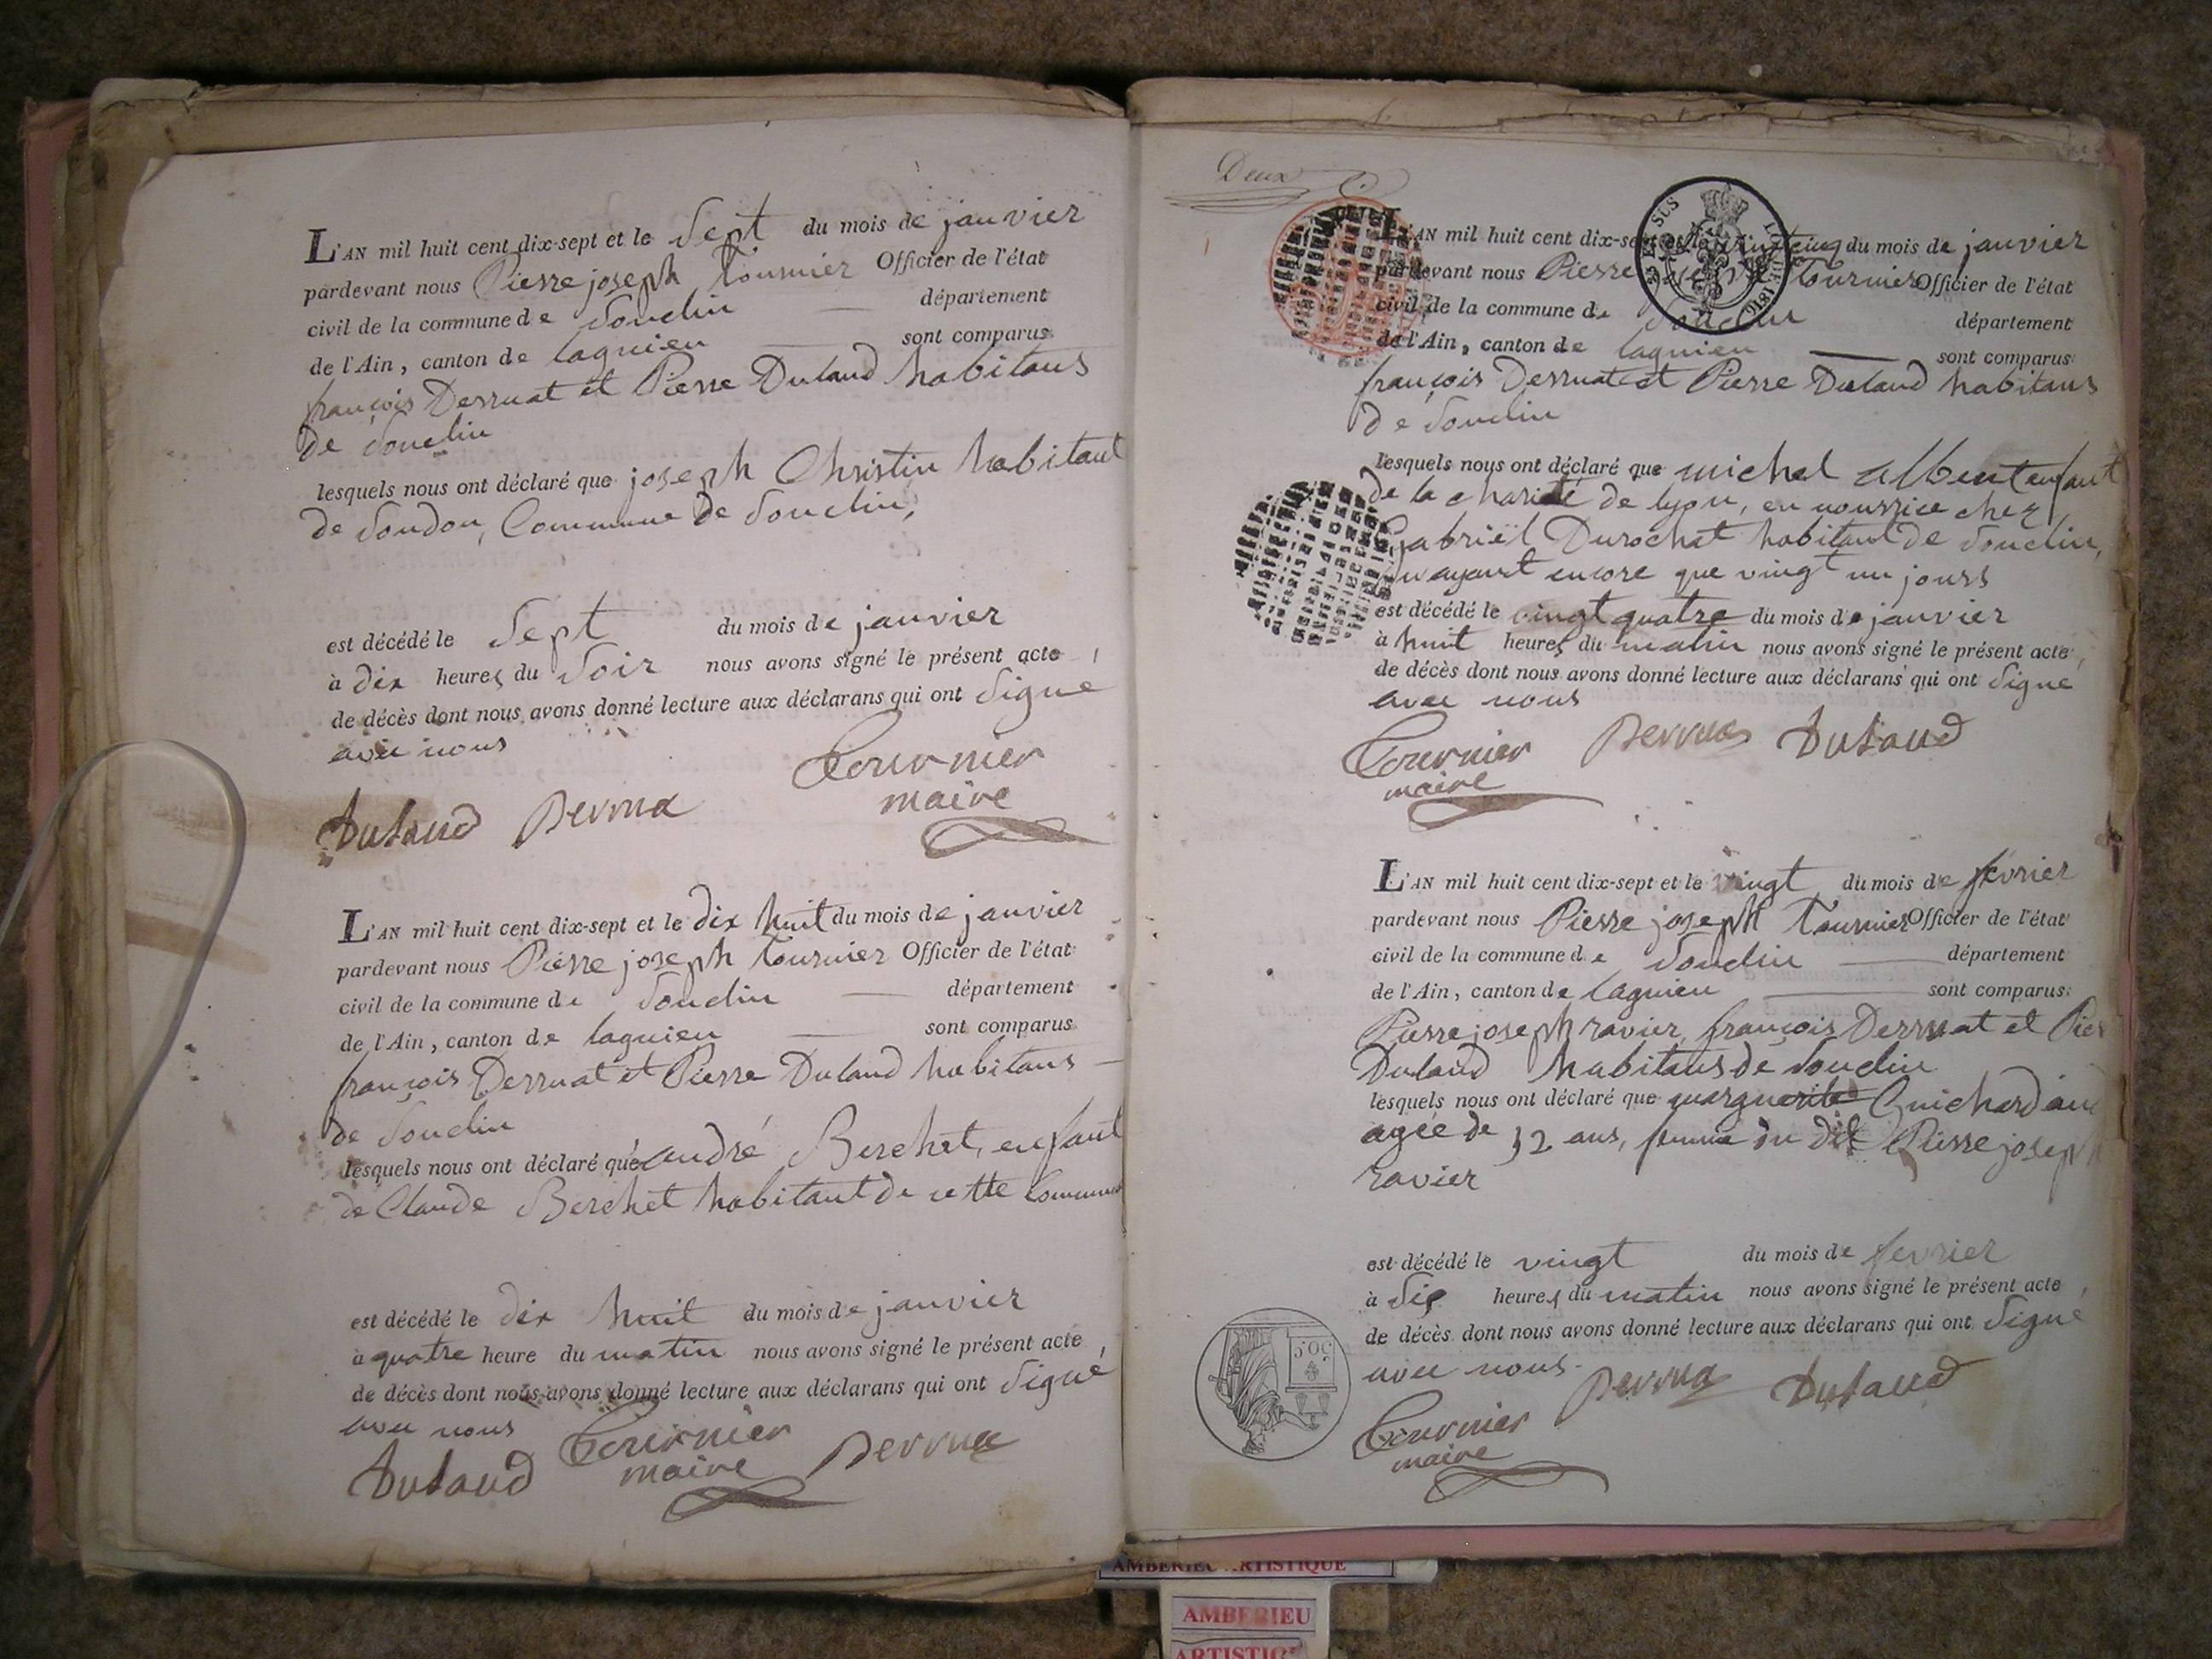 L'AN mil huit cent dix-sept et le Sept du mois de janvier
pardevant nous Pierre joseph Tournier Officier de l'état
civil de la commune de Souclin département
de l'Ain, canton de lagnieu sont comparus
françois Derruat et Pierre Dutaud habitans
de Souclin
lesquels nous ont déclaré que joseph Christin habitant
de Soudon, Commune de Souclin,
est décédé le Sept du mois de janvier
à dix heures du Soir nous avons signé le présent acte,
de décès dont nous avons donné lecture aux déclarans qui ont Signé
avec nous
Tournier
maire
Dutaud Derrua
L'AN mil huit cent dix-sept et le dix huit du mois de janvier
pardevant nous Pierre joseph Tournier Officier de l'état
civil de la commune de Souclin département
de l'Ain, canton de lagnieu sont comparus
françois Derruat et Pierre Dutaud habitans
de Souclin
lesquels nous ont déclaré que andré Berchet, enfant
de Claude Berchet habitant de cette Commune
est décédé le dix huit du mois de janvier
à quatre heure du matin nous avons signé le présent acte,
de décès dont nous avons donné lecture aux déclarans qui ont Signé
avec nous
Tournier
maire
Dutaud Derrua
Deux
L'AN mil huit cent dix-sept et le vingt cinq du mois de janvier
pardevant nous Pierre joseph Tournier Officier de l'état
civil de la commune de Souclin département
de l'Ain, canton de lagnieu sont comparus
françois Derruat et Pierre Dutaud habitans
de Souclin
lesquels nous ont déclaré que michel albent enfant
de la charité de lyon, en nourrice chez
Gabriël Durochat habitant de Souclin,
n'ayant encore que vingt un jours
est décédé le vingt quatre du mois de janvier
à huit heures du matin nous avons signé le présent acte,
de décès dont nous avons donné lecture aux déclarans qui ont Signé
avec nous
Tournier Derrua Dutaud
maire
L'AN mil huit cent dix-sept et le vingt du mois de février
pardevant nous Pierre joseph Tournier Officier de l'état
civil de la commune de Souclin département
de l'Ain, canton de lagnieu sont comparus
Pierre joseph ravier, françois Derruat et Pier
Dutaud habitans de Souclin
lesquels nous ont déclaré que marguerite Guichard
agée de 32 ans, femme du dit Pierre joseph
ravier
est décédé le vingt du mois de fevrier
à Six heures du matin nous avons signé le présent acte,
de décès dont nous avons donné lecture aux déclarans qui ont Signé
avec nous.
Tournier Derrua Dutaud
maire
50C
AMBERIEU ARTISTIQUE
AMBERIEU